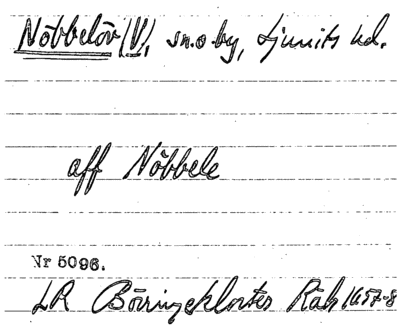 Nöbbelöv (V), sn. o by, Ljunits hd.
aff Nöbbele
Nr 5096.
LR Börringeklosters Räk 1657-8